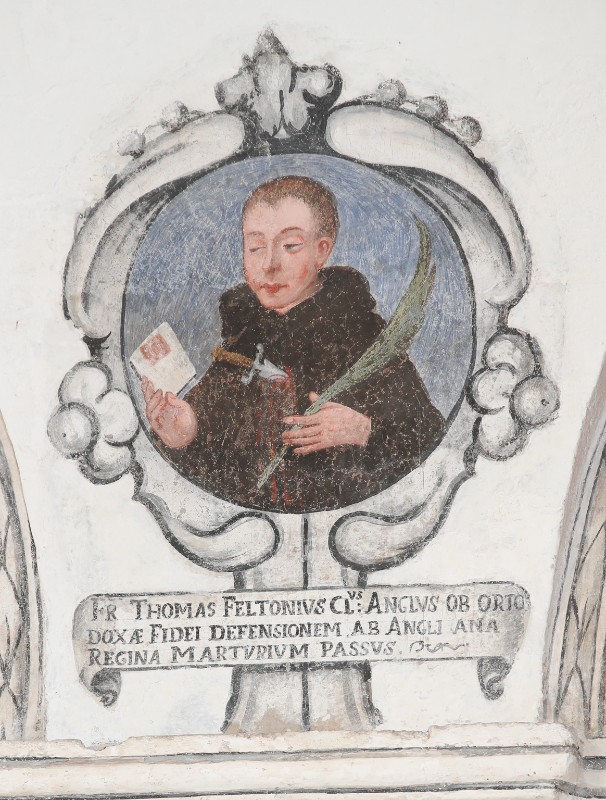 FR THOMAS FELTONIVS CLVS: ANGLVS OB ORTO
DOXÆ FIDEI DEFENSIONEM AB ANGLI ANA
REGINA MARTVRIUM PASSVS.